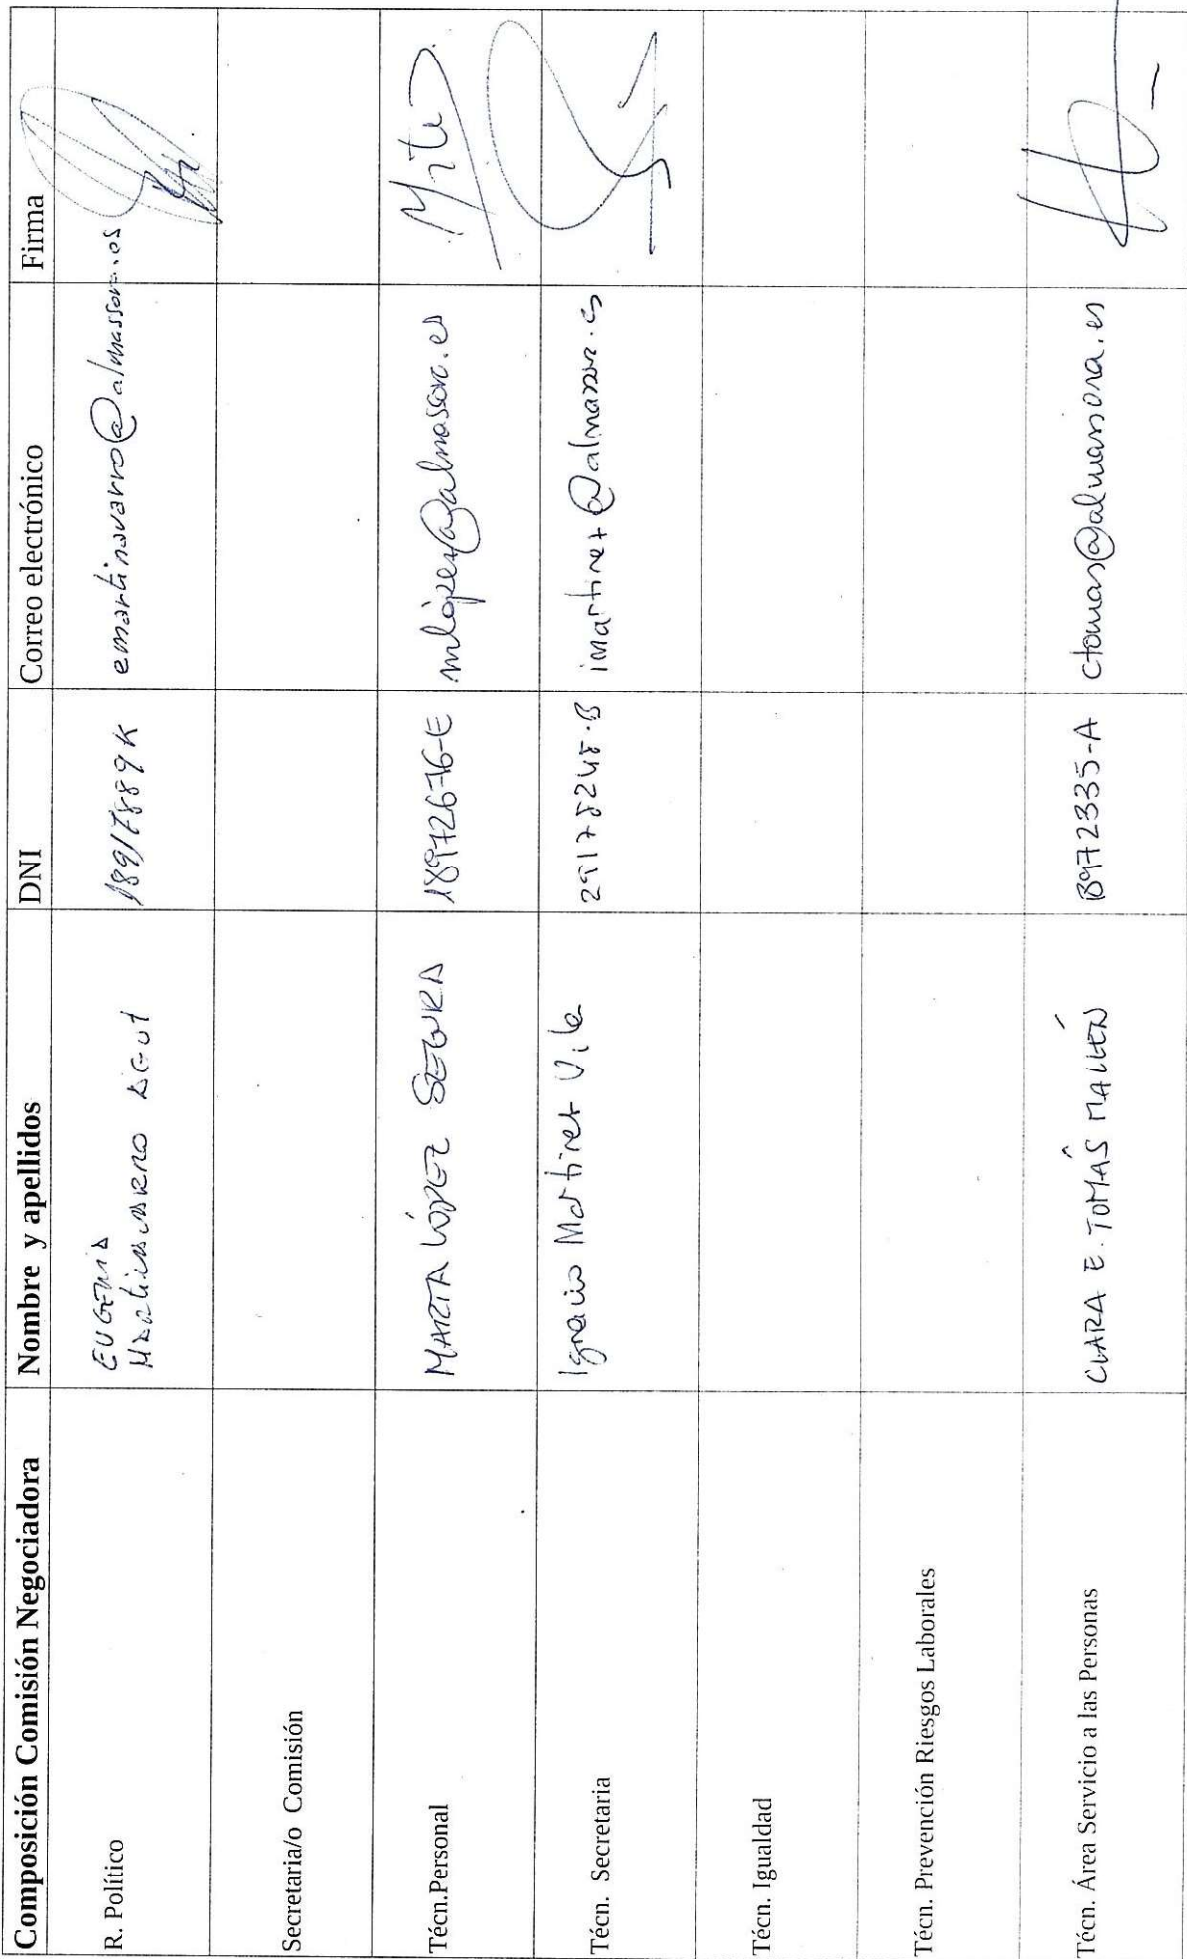 Composición Comisión Negociadora Nombre y apellidos DNI Correo electrónico Firma
R. Político EUGENIA
emartinavarro@almassora.es
Secretaria/o Comisión
Técn.Personal MARTA LÓPEZ SEGURA 18972676-E mlopez@almassora.es
Técn. Secretaria Ignacio Martinez Vila 29178248-B imartinez@almassora.es
Técn. Igualdad
Técn. Prevención Riesgos Laborales
Técn. Área Servicio a las Personas CLARA E. TOMÁS MALLÉN ctomas@almassora.es